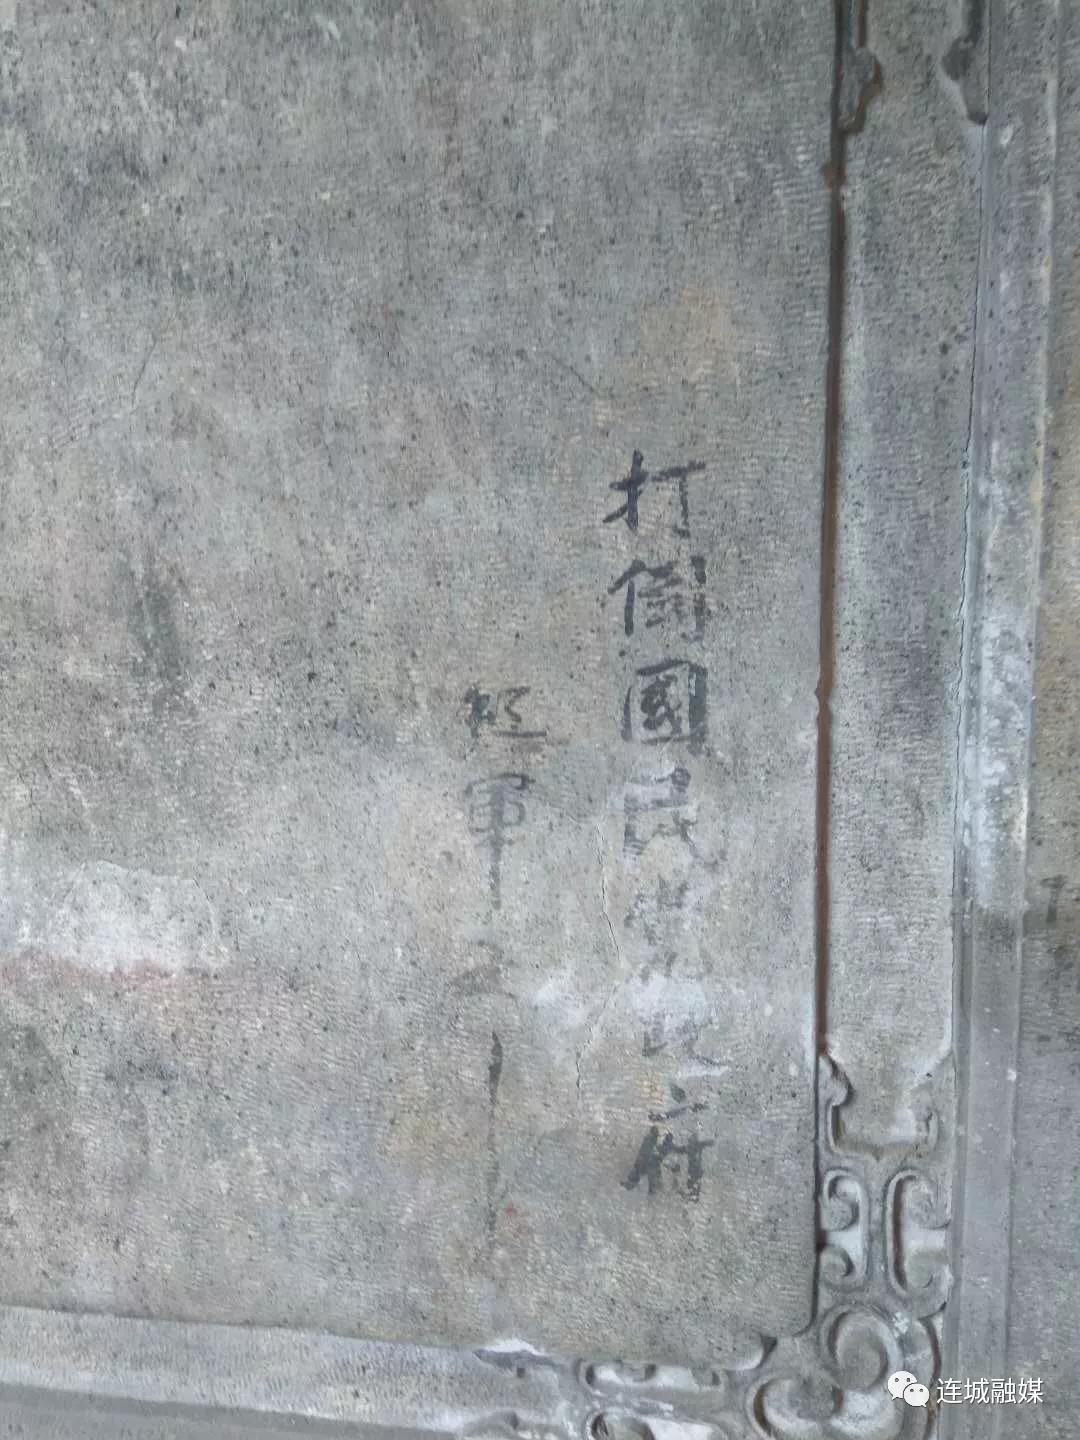 打倒國民黨政府
紅軍
连城融媒